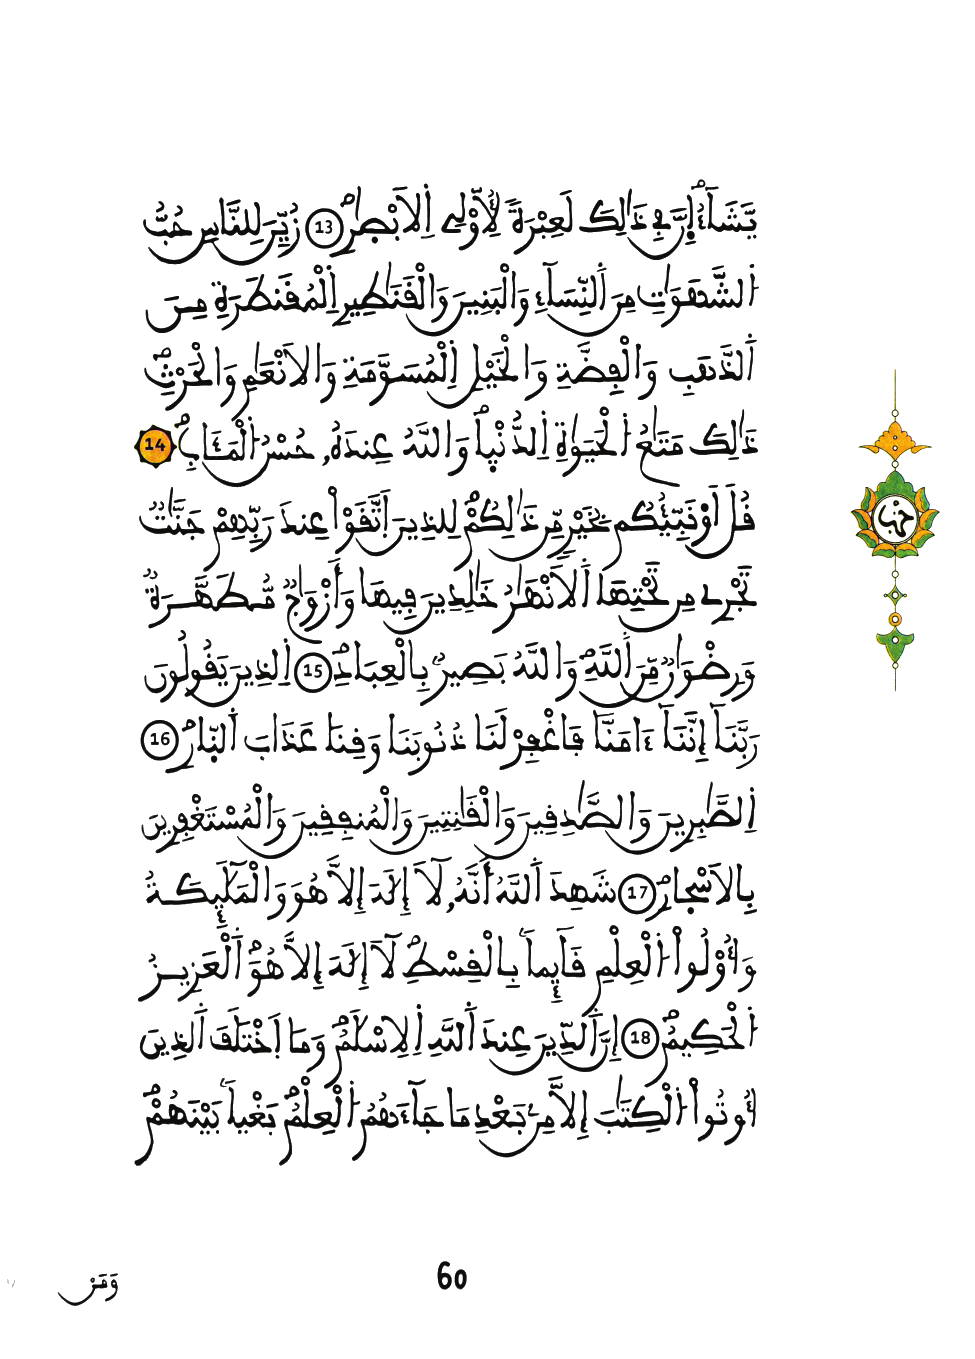 يَّشَآءُ إِنَّ فِے ذَٰلِكَ لَعِبْرَةٗ لِّأُوْلِے اِلَابْصٰ۪رِۖ 13 زُيِّنَ لِلنَّاسِ حُبُّ
اُ۬لشَّهَوَٰتِ مِنَ اَ۬لنِّسَآءِ وَالْبَنِينَ وَالْقَنَٰطِيرِ اِ۬لْمُقَنطَرَةِ مِنَ
اَ۬لذَّهَبِ وَالْفِضَّةِ وَالْخَيْلِ اِ۬لْمُسَوَّمَةِ وَالَانْعَٰمِ وَالْحَرْثِۖ
ذَٰلِكَ مَتَٰعُ اُ۬لْحَيَوٰةِ اِ۬لدُّنْي۪اۖ وَاللَّهُ عِندَهُۥ حُسْنُ اُ۬لْمَـَٔابِۖ 14
قُلَ اَوْ۬نَبِّئُكُم بِخَيْرٖ مِّن ذَٰلِكُمْۖ لِلذِينَ اَ۪تَّقَوْاْ عِندَ رَبِّهِمْ جَنَّٰتٞ
تَجْرِے مِن تَحْتِهَا اَ۬لَانْهَٰرُ خَٰلِدِينَ فِيهَا وَأَزْوَٰجٞ مُّطَهَّرَةٞ
وَرِضْوَٰنٞ مِّنَ اَ۬للَّهِۖ وَاللَّهُ بَصِيرُۢ بِالْعِبَادِۖ 15 اِ۬لذِينَ يَقُولُونَ
رَبَّنَآ إِنَّنَآ ءَامَنَّا فَاغْفِرْ لَنَا ذُنُوبَنَا وَقِنَا عَذَابَ اَ۬لنّ۪ارِۖ 16
اِ۬لصَّٰبِرِينَ وَالصَّٰدِقِينَ وَالْقَٰنِتِينَ وَالْمُنفِقِينَ وَالْمُسْتَغْفِرِينَ
بِالَاسْح۪ارِۖ 17 شَهِدَ اَ۬للَّهُ أَنَّهُۥ لَآ إِلَٰهَ إِلَّا هُوَ وَالْمَلَٰٓئِكَةُ
وَأُوْلُواْ اُ۬لْعِلْمِ قَآئِماَۢ بِالْقِسْطِۖ لَآ إِلَٰهَ إِلَّا هُوَۖ اَ۬لْعَزِيزُ
اُ۬لْحَكِيمُۖ 18 إِنَّ اَ۬لدِّينَ عِندَ اَ۬للَّهِ اِ۬لِاسْلَٰمُۖ وَمَا اَ۪خْتَلَفَ اَ۬لذِينَ
أُوتُواْ اُ۬لْكِتَٰبَ إِلَّا مِنۢ بَعْدِ مَا جَآءَهُمُ اُ۬لْعِلْمُۖ بَغْياَۢ بَيْنَهُمْۖ
حزب
60
وَمَنْ